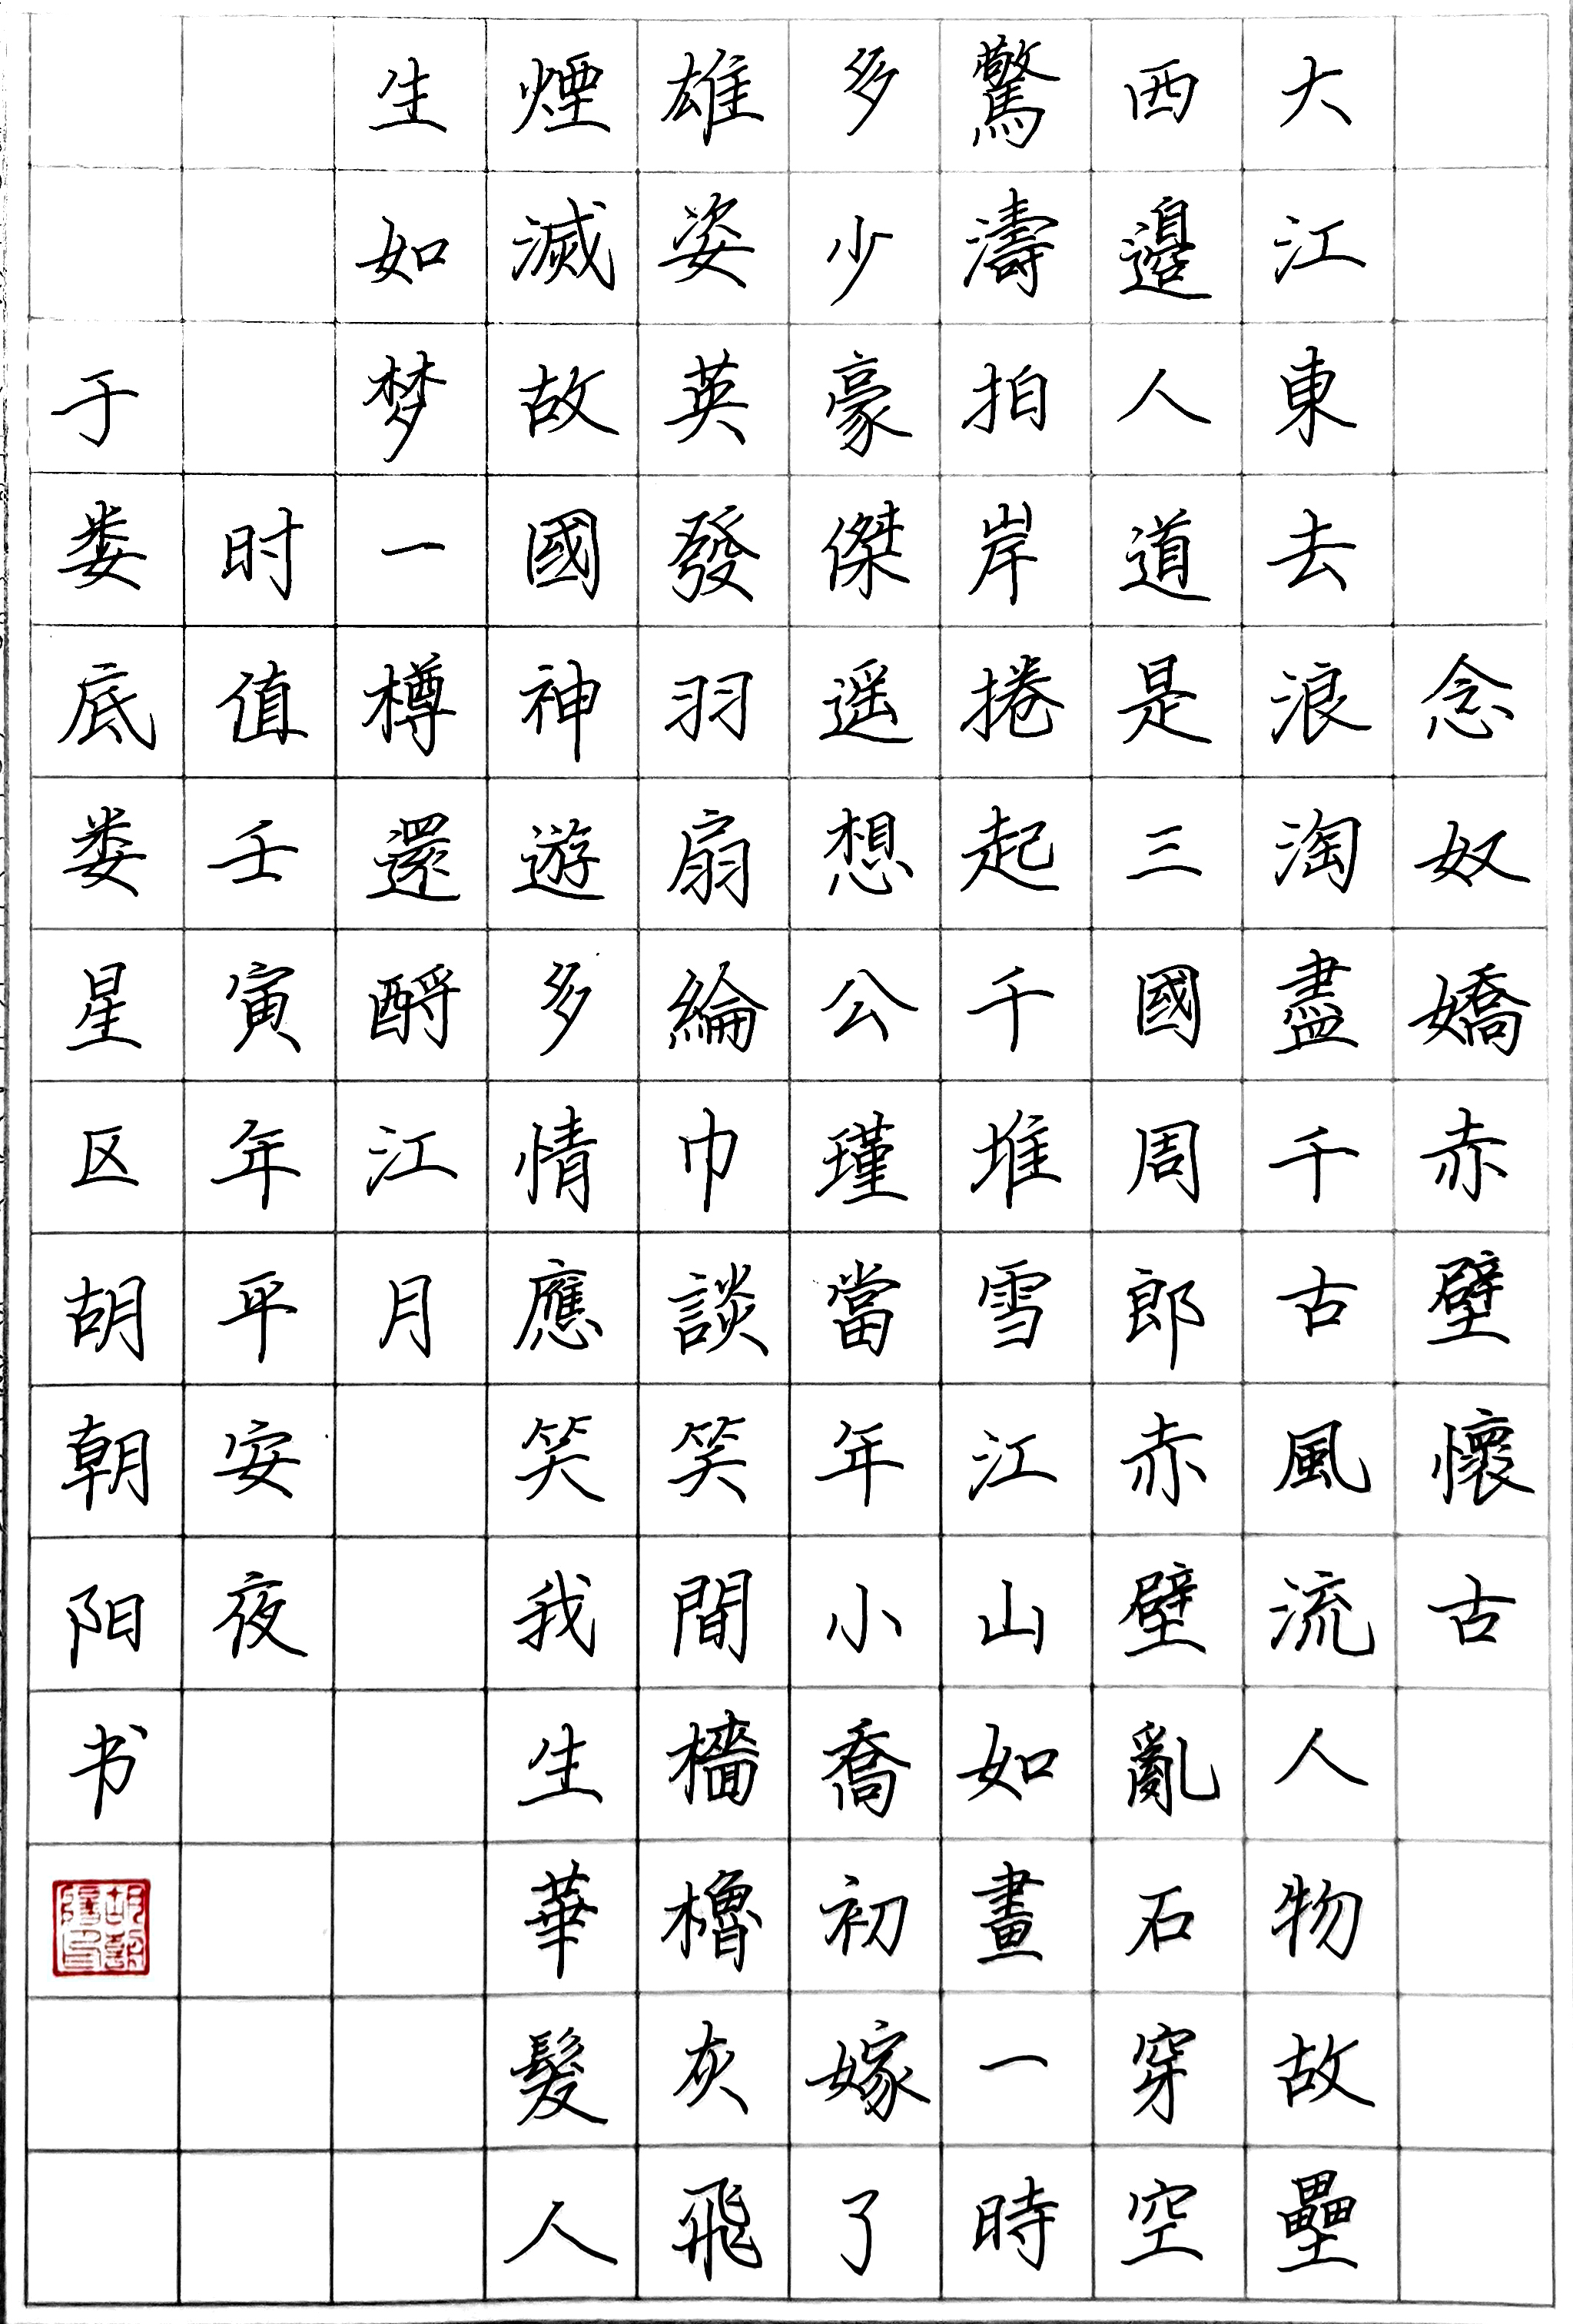 念奴嬌赤壁懷古
大江東去浪淘盡千古風流人物故壘
西邊人道是三國周郎赤壁亂石穿空
驚濤拍岸捲起千堆雪江山如畫一時
多少豪傑遥想公瑾當年小喬初嫁了
雄姿英發羽扇綸巾談笑間檣櫓灰飛
煙滅故國神遊多情應笑我生華髮人
生如梦一樽還酹江月
时值壬寅年平安夜
于娄底娄星区胡朝阳书